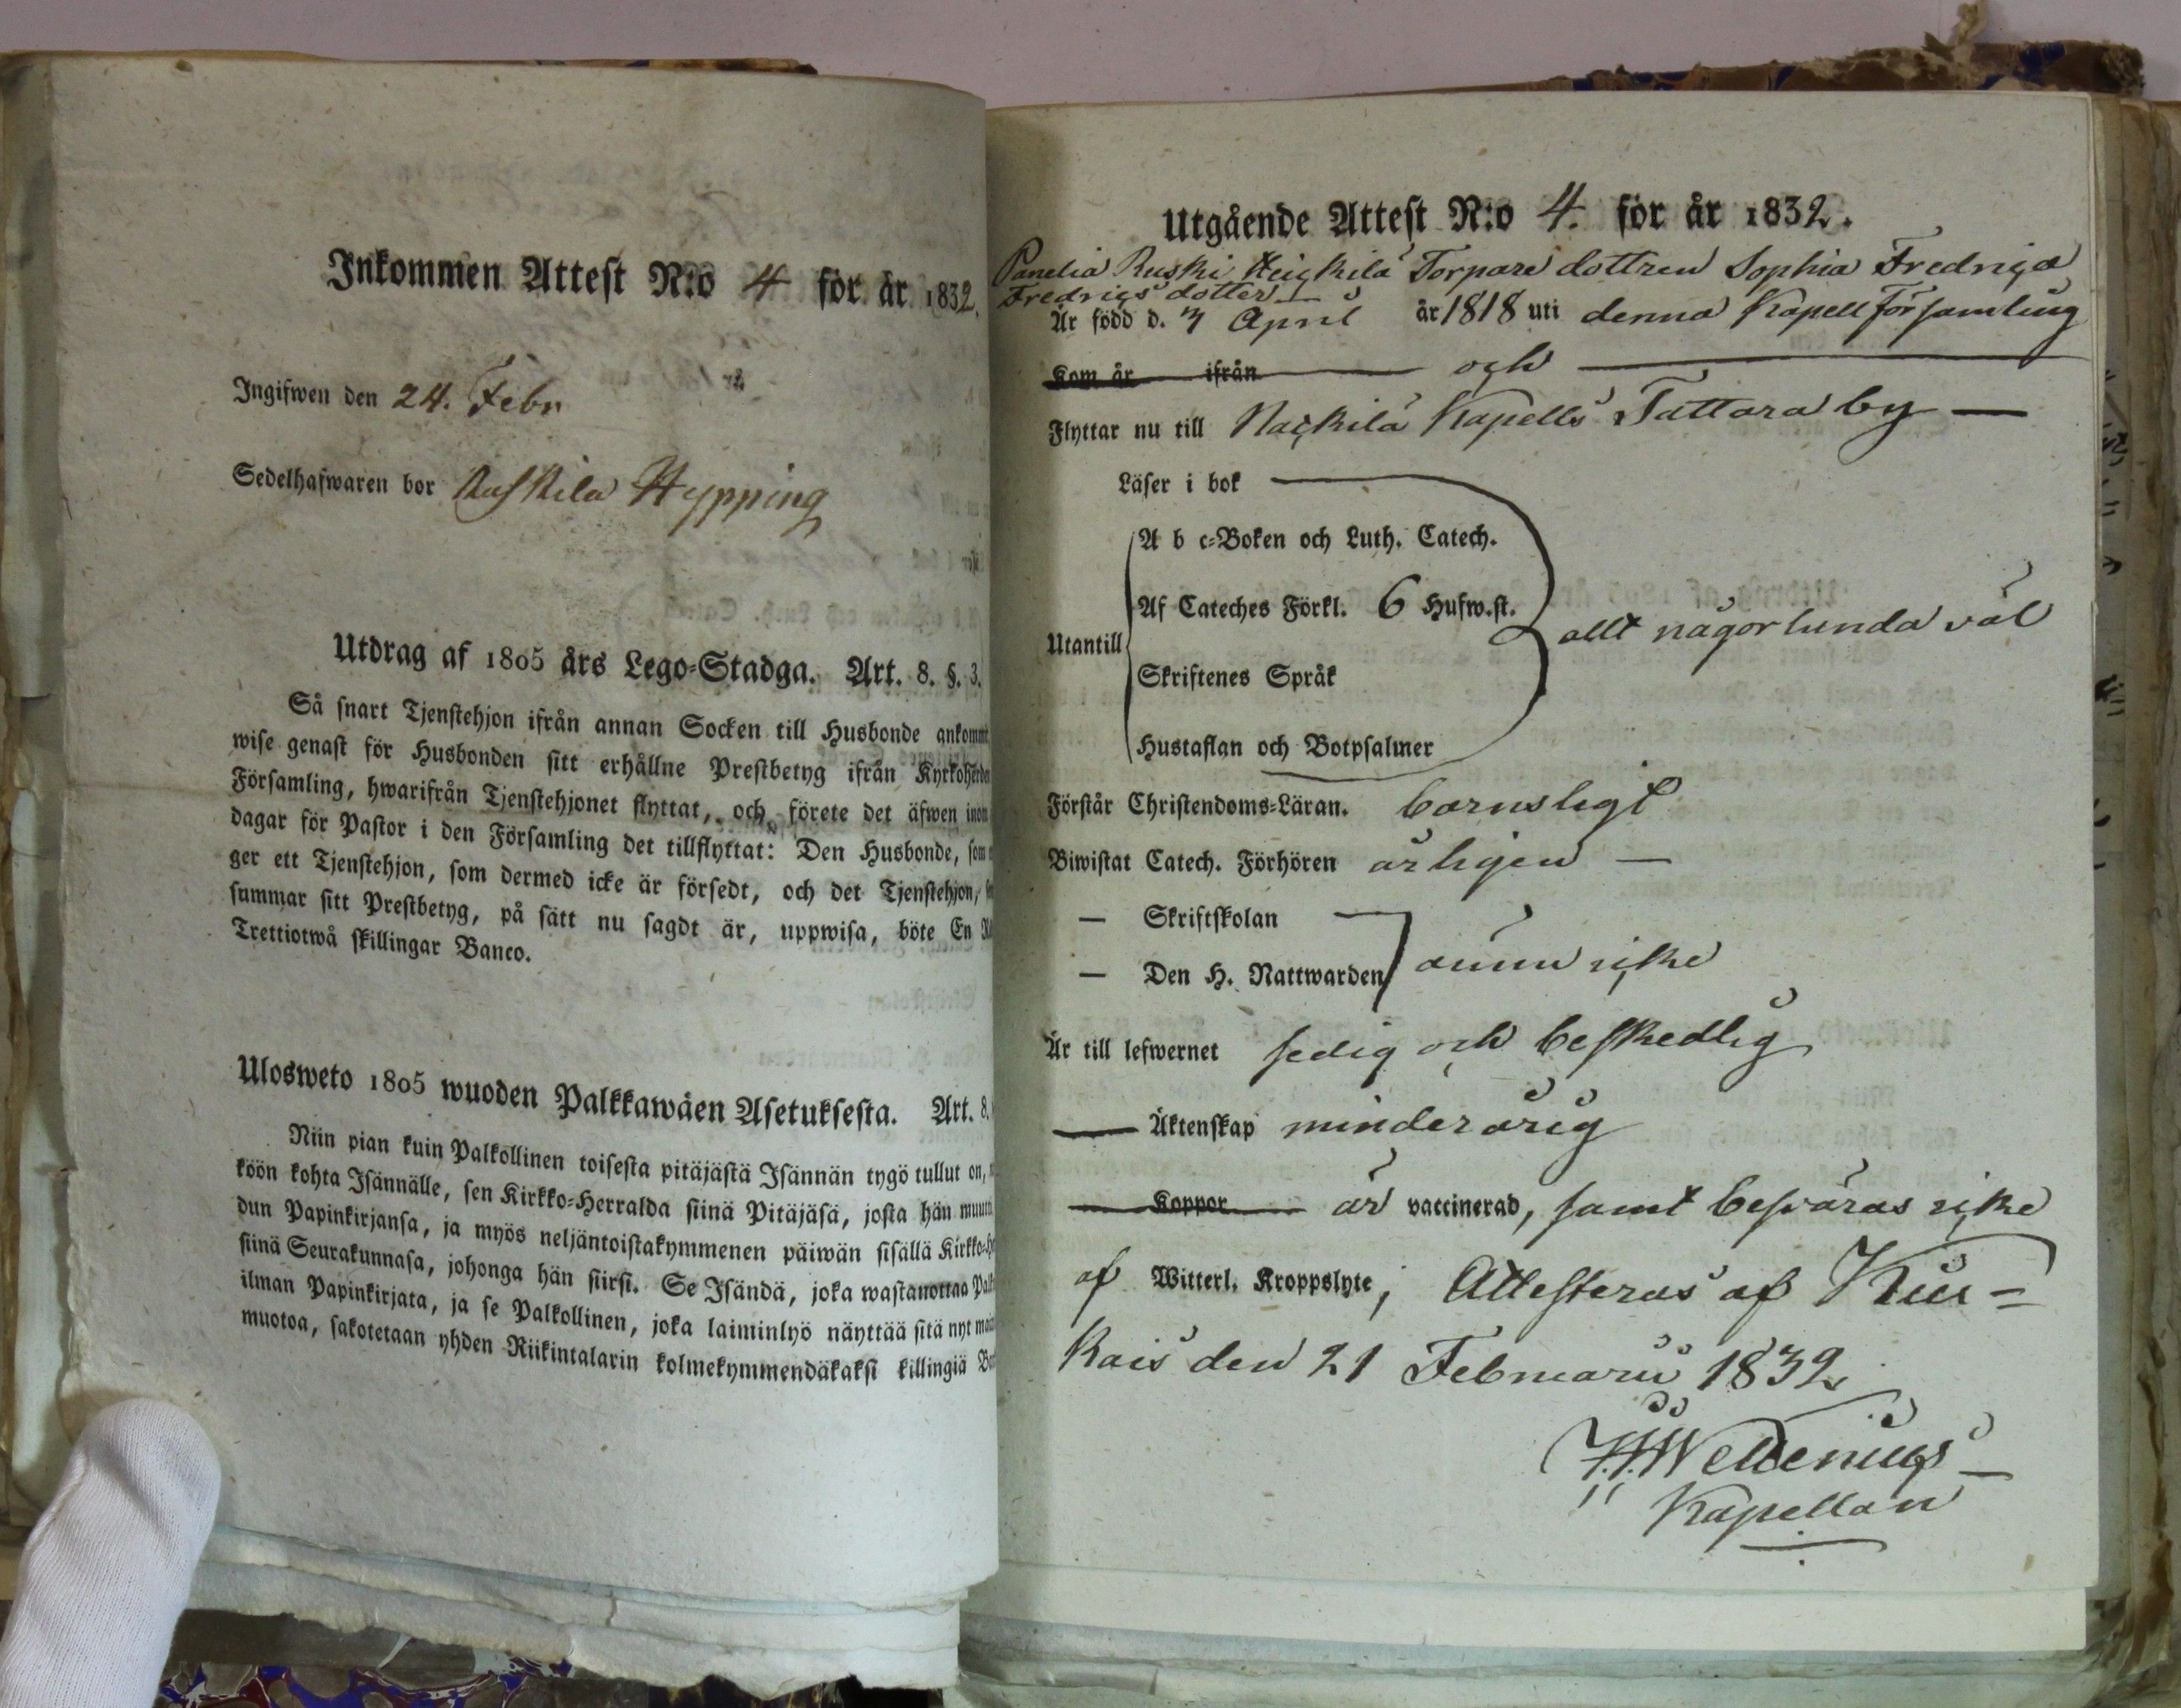 Inkommen Attest N:o 4 för år 1832.
Ingifwen den 24. Febr
Sedelhafwaren bor Kaskila Hypping
Utdrag af 1805 års Lego-Stadga. Art. 8. §. 3.
Så snart Tjenstehjon ifrån annan Socken till Husbonde ankommit
wise genast för Husbonden sitt erhållne Prestbetyg ifrån Kyrkoherden
Församling, hwarifrån Tjenstehjonet flyttat, och förete det äfwen inom
dagar för Pastor i den Församling det tillflyttat: Den Husbonde, som
ger ett Tjenstehjon, som dermed icke är försedt, och det Tjenstehjon,
summar sitt Prestbetyg, på sätt nu sagdt är, uppwisa, böte En
Trettiotwå skillingar Banco.
Ulosweto 1805 wuoden Palkkawäen Asetuksesta. Art. 8.
Niin pian kuin Palkollinen toisesta pitäjästä Isännän tygö tullut on,
köön kohta Isännälle, sen Kirkko-Herralda siinä Pitäjäsä, josta hän
dun Papinkirjansa, ja myös neljäntoistakymmenen päiwän sisällä
siinä Seurakunnasa, johonga hän siirsi. Se Isändä, joka wastanottaa
ilman Papinkirjata, ja se Palkollinen, joka laiminlyö näyttää sitä nyt
muotoa, sakotetaan yhden Riikintalarin kolmekymmendäkaksi killingiä
Utgående Attest N:o 4. för år 1832.
Panelia Ruski Heickilä Torpare dottren Sophia Fredrica
Fredrics dotter
Är född d. 7 April år 1818 uti denna Kapell Församling
Kom år ifrån och
Flyttar nu till Nackila Kapells Tattara by
Läser i bok
A b c-Boken och Luth. Catech.
Af Cateches Förkl. 6 Hufw.st.
Utantill allt någorlunda väl
Skriftenes Språk
Hustaflan och Botpsalmer
Förstår Christendoms-Läran. barnsligt
Biwistat Catech. Förhören årligen
— Skriftskolan
— Den H. Nattwarden ännu icke
Är till lefwernet sedig och beskedlig
Äktenskap minderårig
Koppor är vaccinerad, samt besväras icke
af Witterl. Kroppslyte; Attesteras af Kiu=
kais den 21 Februarii 1832.
Kapellan